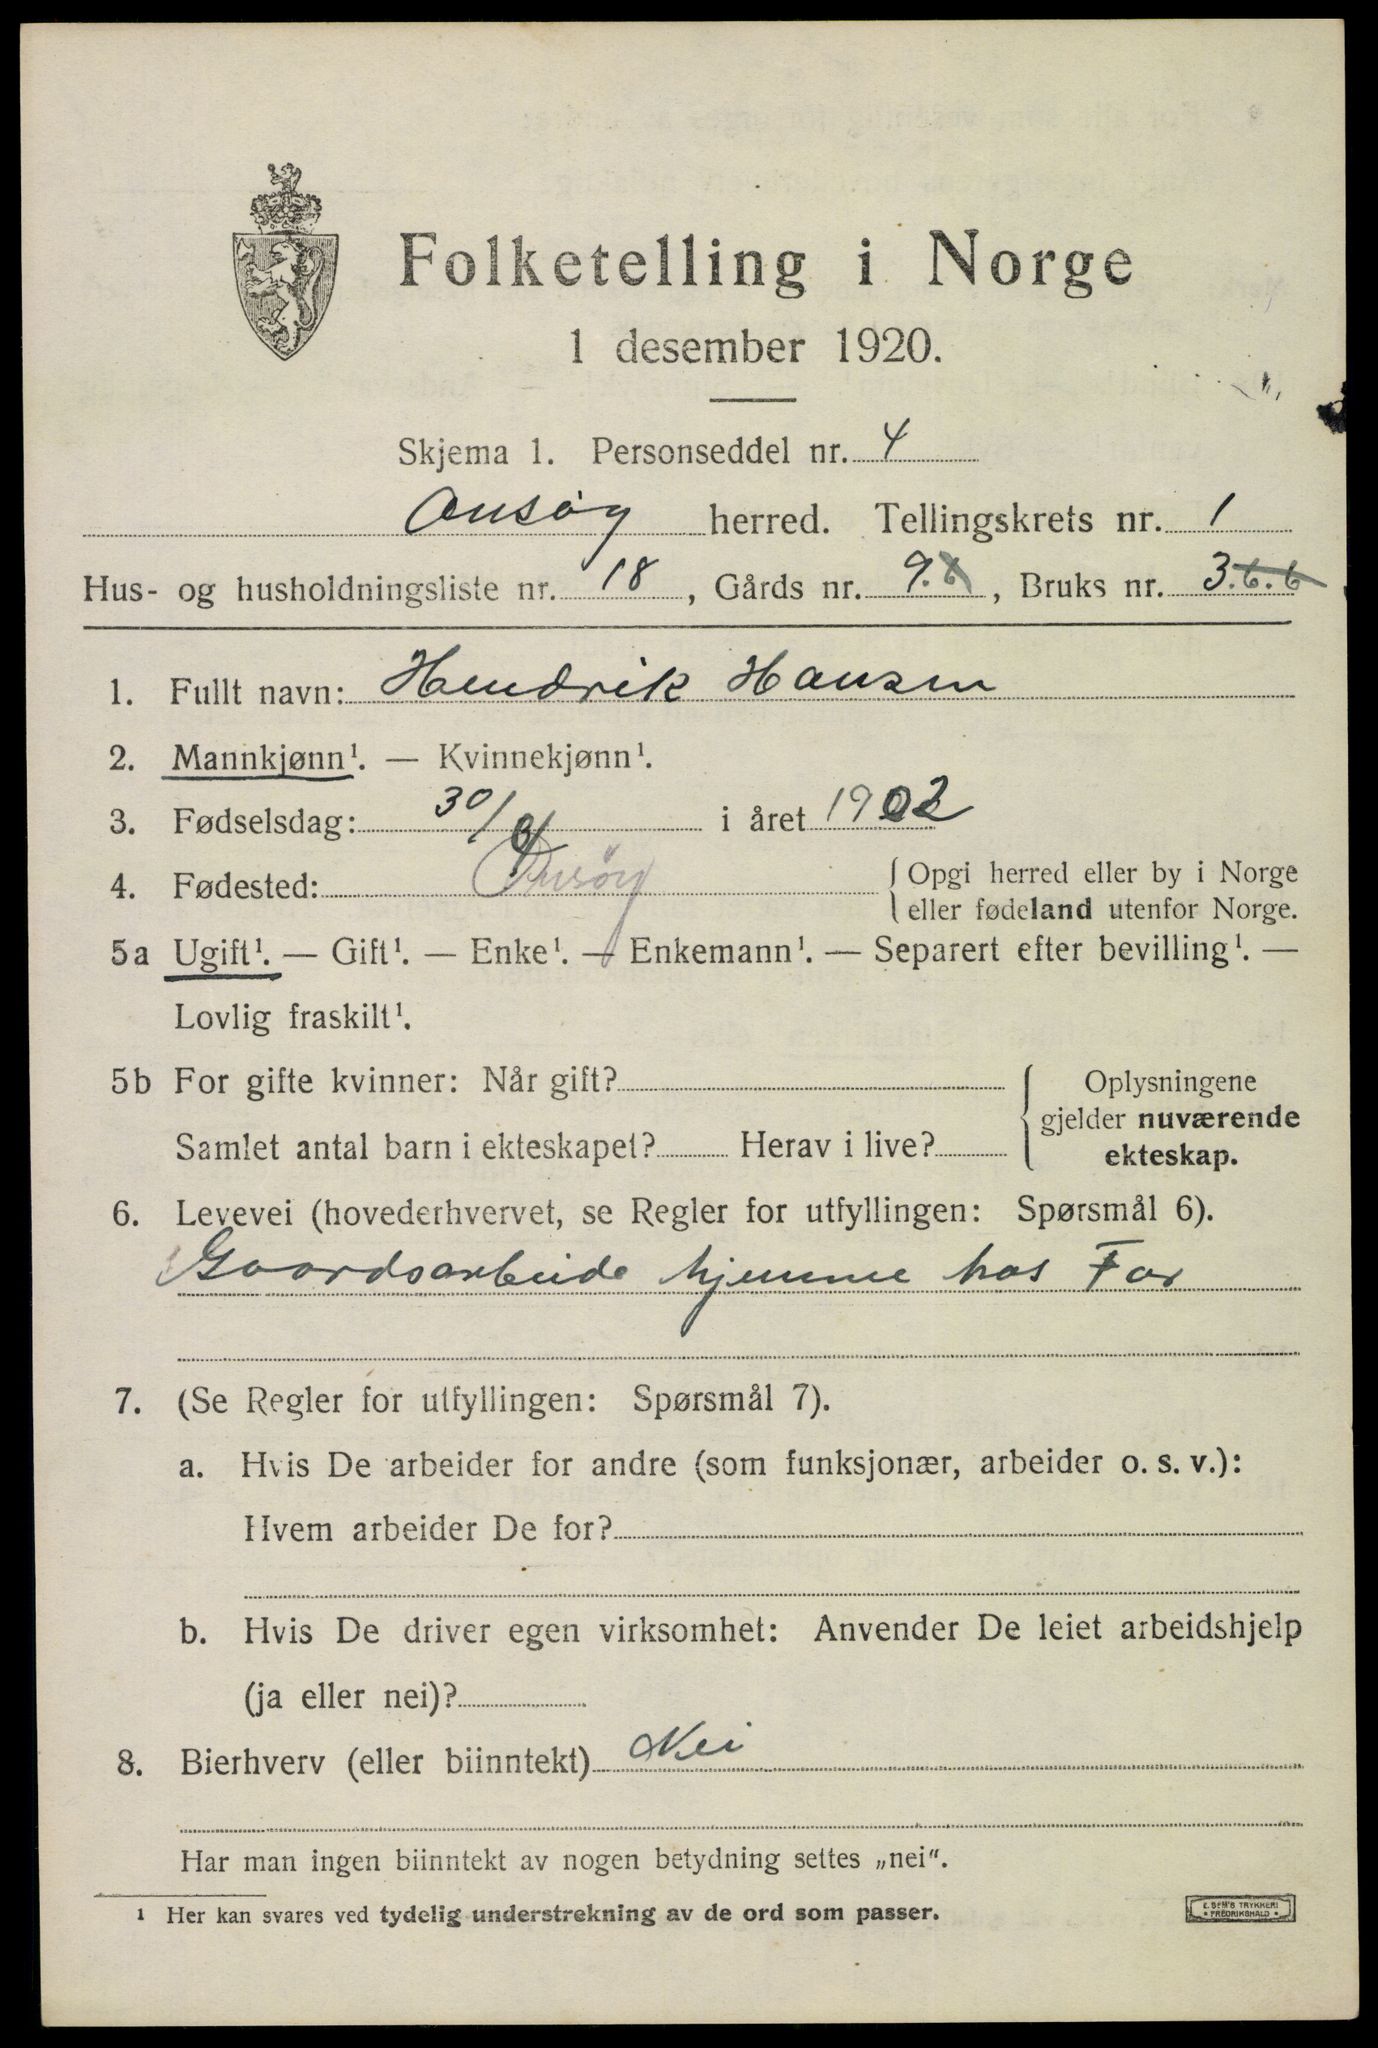 Folketelling i Norge
1 desember 1920.
Skjema 1. Personseddel nr. 4
Onsøy herred. Tellingskrets nr. 1
Hus- og husholdningsliste nr. 18, Gårds nr. 9. 6, Bruks nr. 3. 6. 6
1. Fullt navn: Hendrik Hansen
2. Mannkjønn¹. — Kvinnekjønn¹.
3. Fødselsdag: 30/ i året 1902
4. Fødested: Onsøy { Opgi herred eller by i Norge
eller fødeland utenfor Norge.
5a Ugift¹. — Gift¹. — Enke¹. — Enkemann¹. — Separert efter bevilling¹. —
Lovlig fraskilt¹.
5b For gifte kvinner: Når gift?
Samlet antal barn i ekteskapet? Herav i live?
{ Oplysningene
gjelder nuværende
ekteskap.
6. Levevei (hovederhvervet, se Regler for utfyllingen: Spørsmål 6).
Gaardsarbeide hjemme hos Far
7. (Se Regler for utfyllingen: Spørsmål 7).
a. Hvis De arbeider for andre (som funksjonær, arbeider o. s. v.):
Hvem arbeider De for?
b. Hvis De driver egen virksomhet: Anvender De leiet arbeidshjelp
(ja eller nei)?
8. Bierhverv (eller biinntekt) Nei
Har man ingen biinntekt av nogen betydning settes „nei“.
¹ Her kan svares ved tydelig understrekning av de ord som passer.
E. SEM'S TRYKKERI
• FREDRIKSHALD •